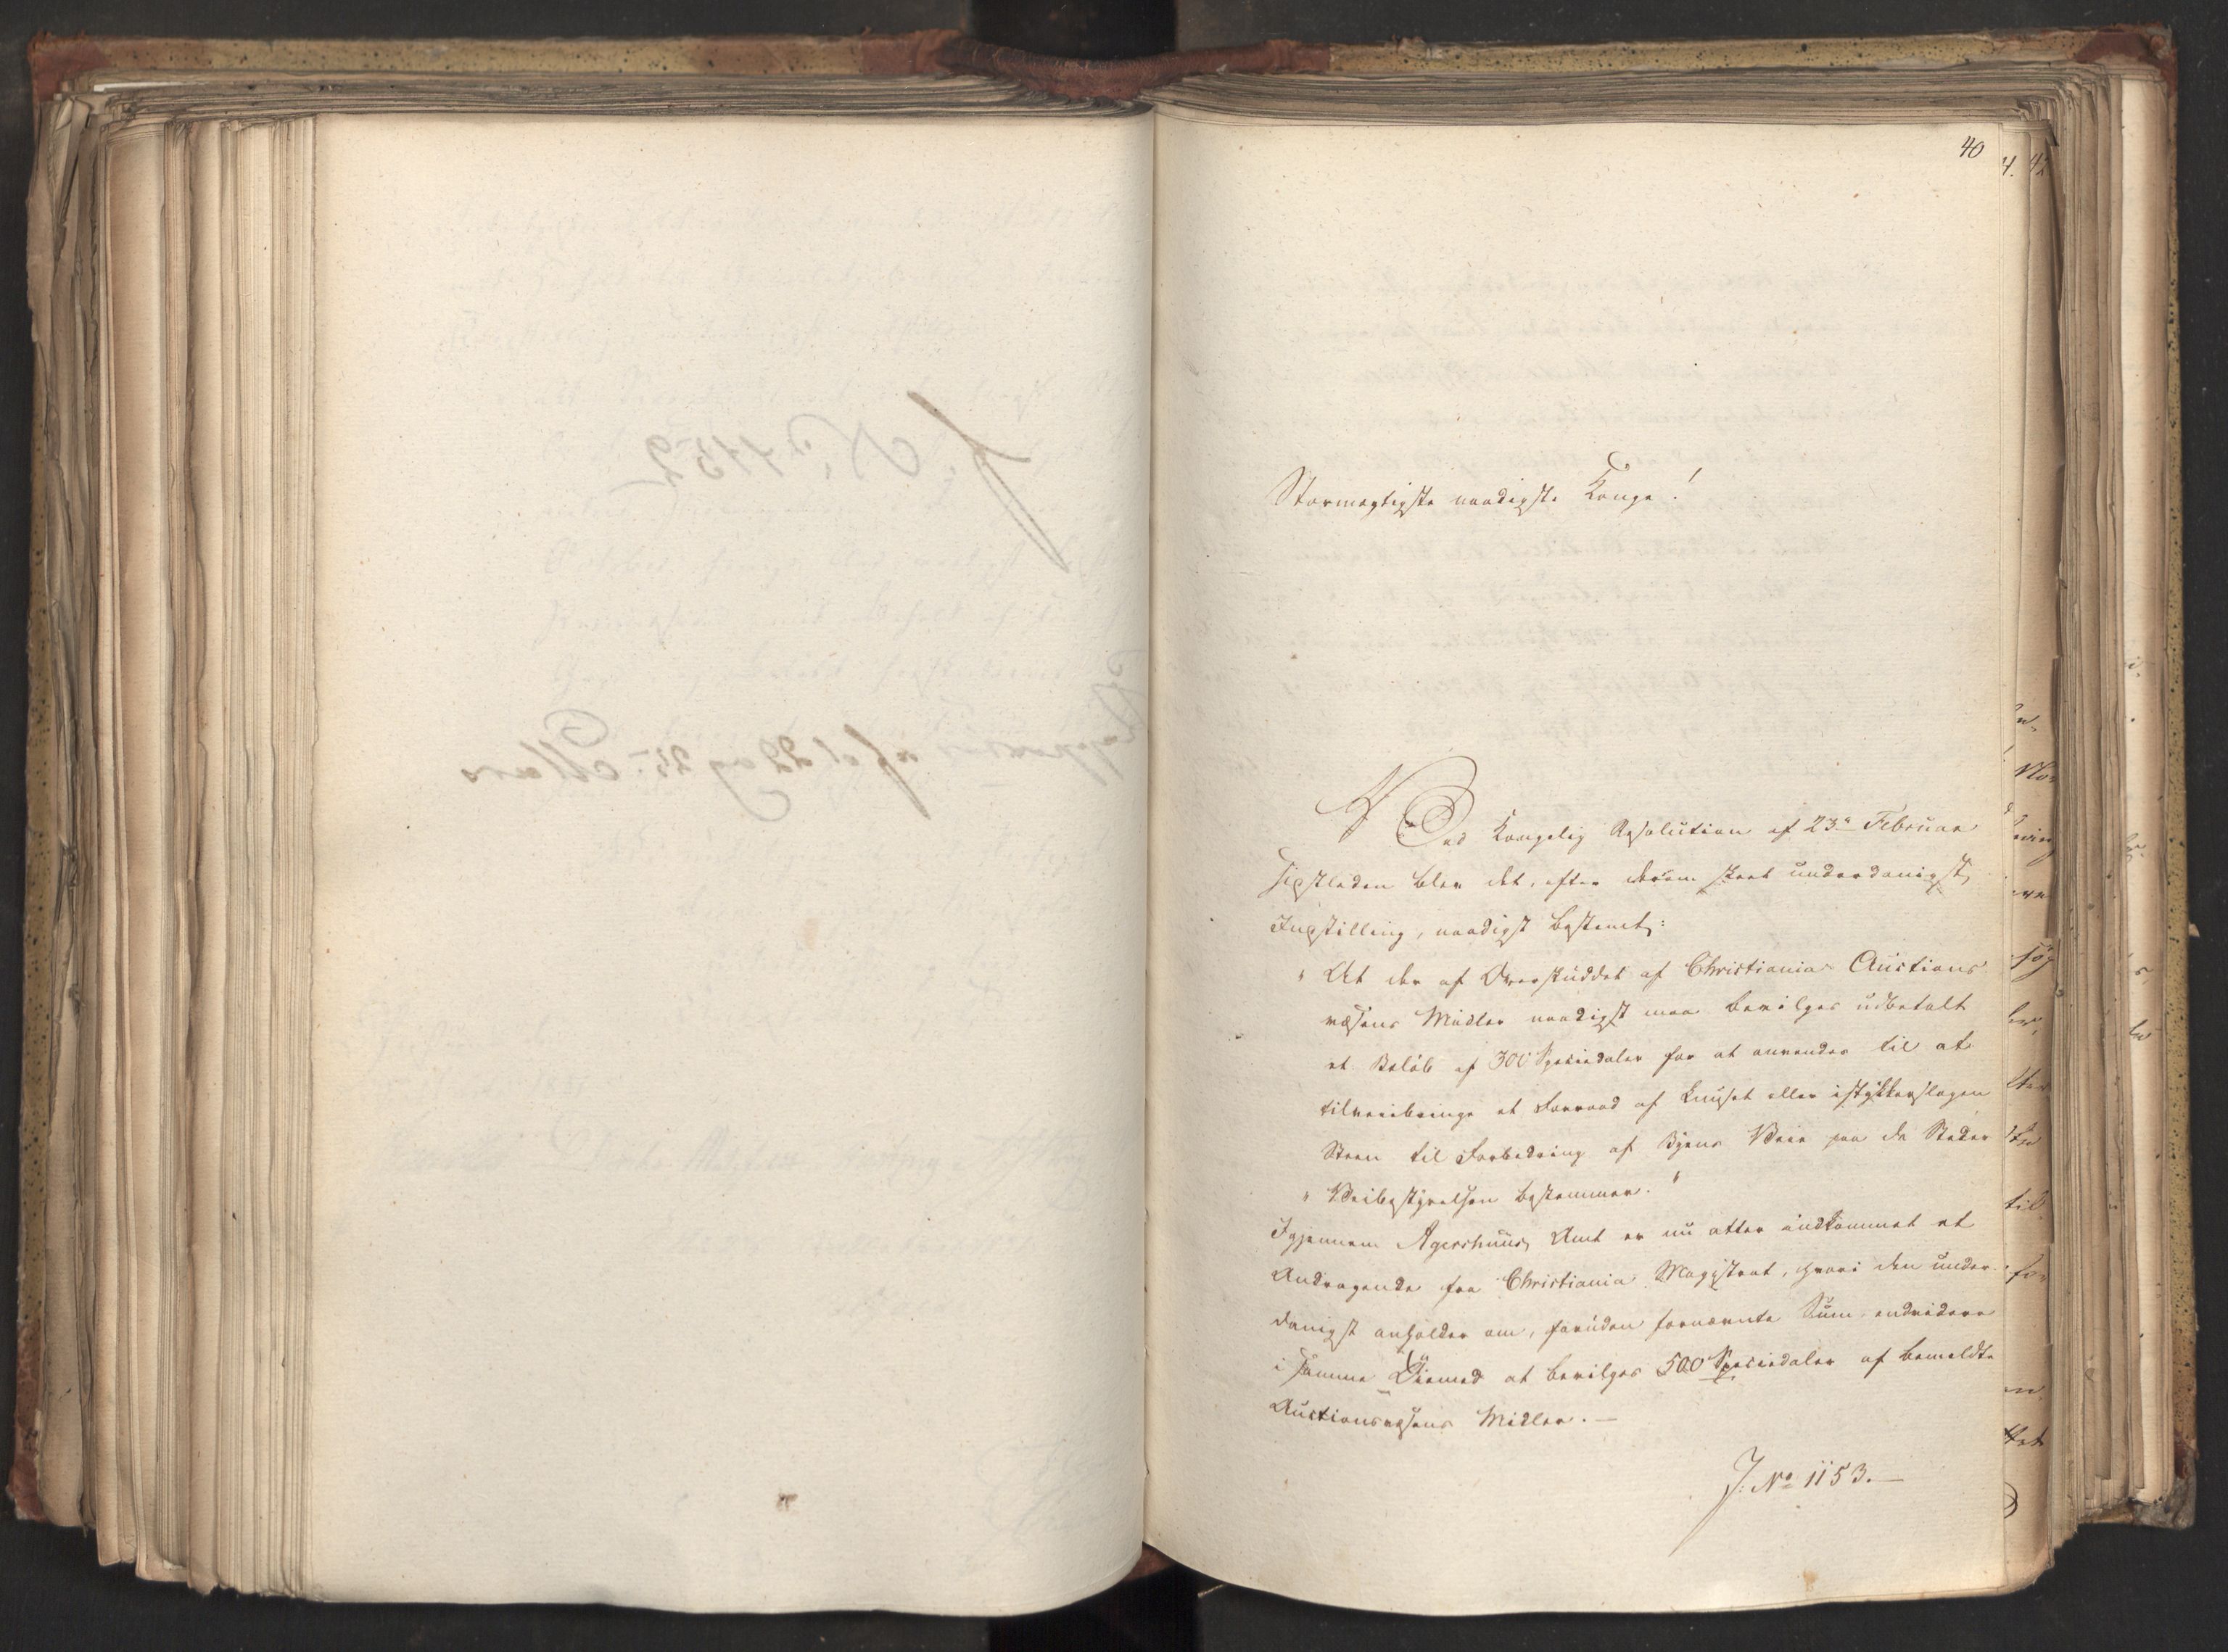 40
Stormægtigste naadigste Konge!
Ved Kongelig Resolution af 23de Februar
sidstleden blev det, efter derom skeet underdanigst
Indstilling, naadigst bestemt:
" At der af Overskuddet af Christiania Auctions
væsens Midler naadigst maa bevilges udbetalt
et Beløb af 300 Speciedaler for at anvendes til at
tilveiebringe et Forraad af knuset eller istykkerslagen
Steen til Forbedring af Byens Veie paa de Steder
" Veibestyrelsen bestemmer. "
Igjennem Agershuus Amt er nu atter indkommet et
Andragende fra Christiania Magistrat, hvori den under-
danigst anholder om, foruden fornævnte Sum endvidere
i samme Øiemed at bevilges 500 Speciedaler af bemeldte
Auctionsvæsens Midler. —
J. No 1153. —